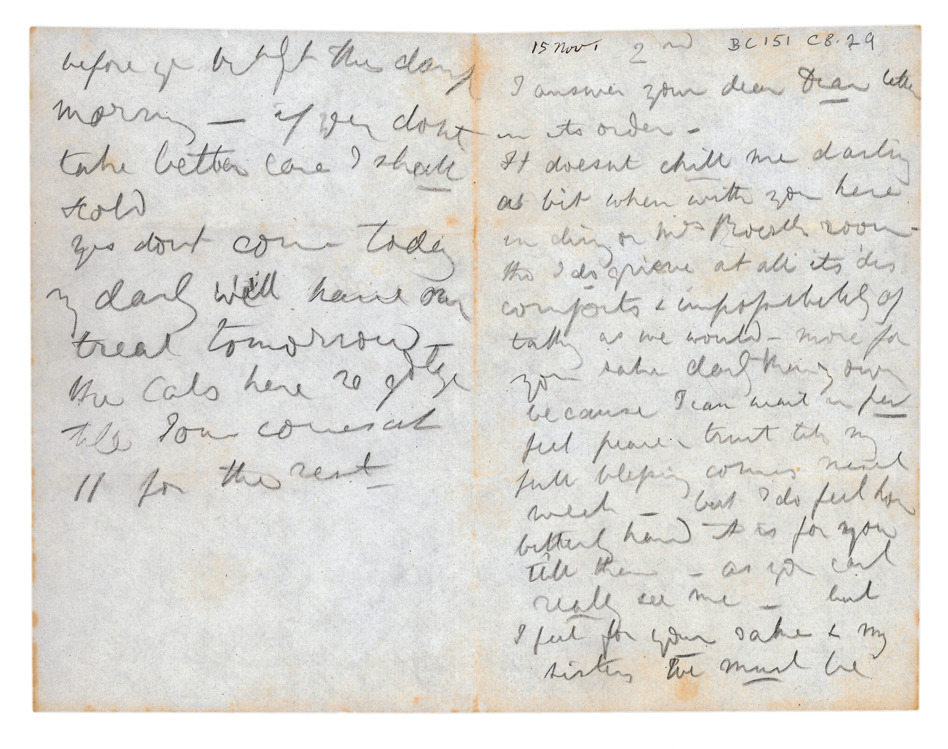 before ye the damp
morning — if you dont
take better care I shall
scold
yes dont come today
my darlg we'll have our
treat tomorrow
the Cabs here 20
Tom comes at
11 for the rest
15 Nov 2nd BC 151 C8.29
I answer your dear Dear letter
in its order -
It doesnt chill me darling
a bit when with you here
in ding or Mrs room -
tho I do grieve at all its dis
comforts & impossibility of
talkg as we would - more for
your sake darlg than my own
because I can wait in per
fect peace & trust till my
full blessing comes next
week - but I do feel how
bitterly hard it is for you
till then - as you cant
really see me - but
I feel for your sake & my
sisters We must be